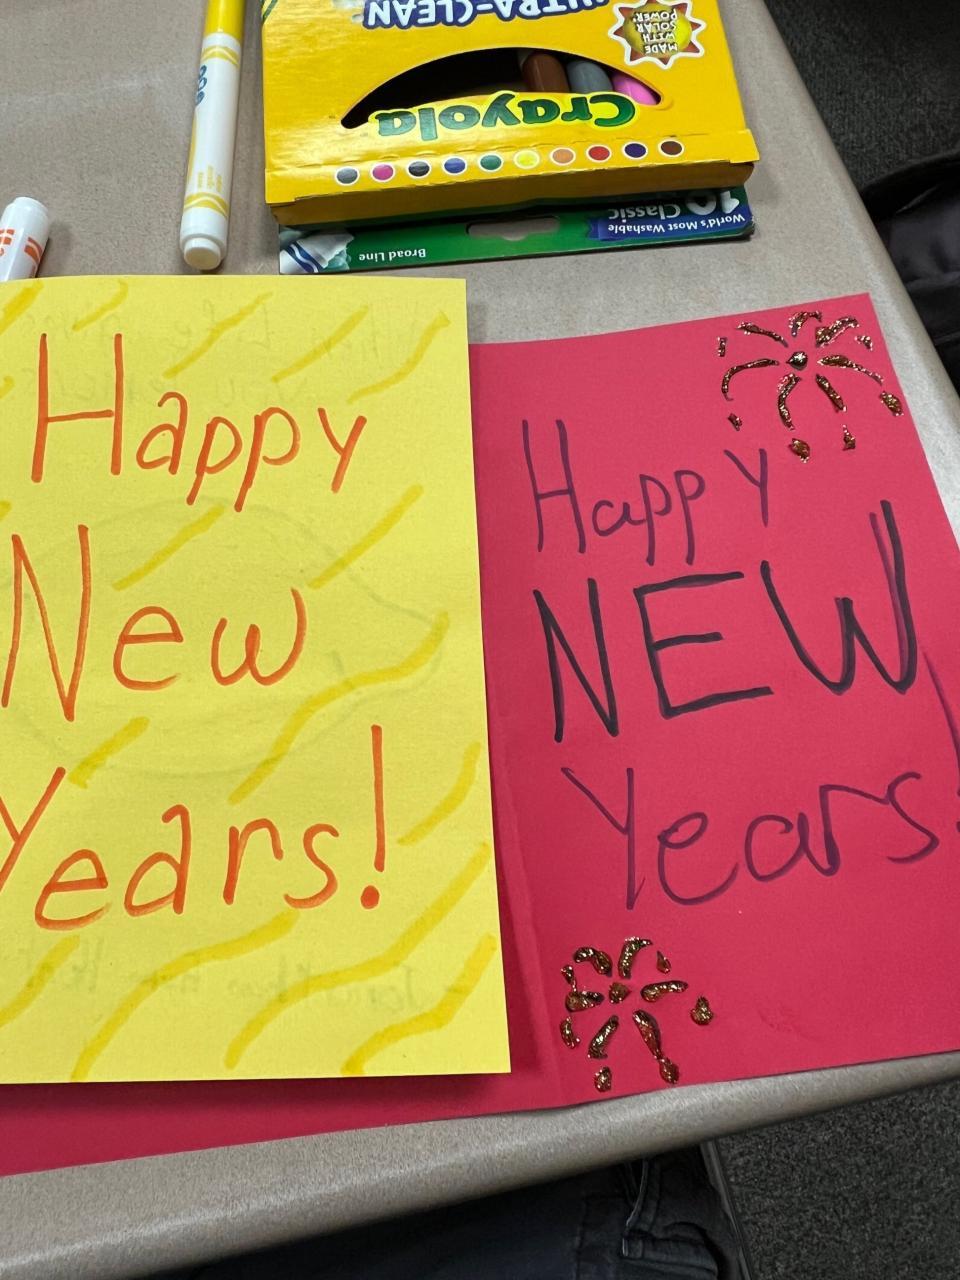 ULTRA-CLEAN
MADE
WITH
SOLAR
POWER
Crayola
10 Classic
World's Most Washable
Broad Line
Happy
New
Years!
Happy
NEW
Years!